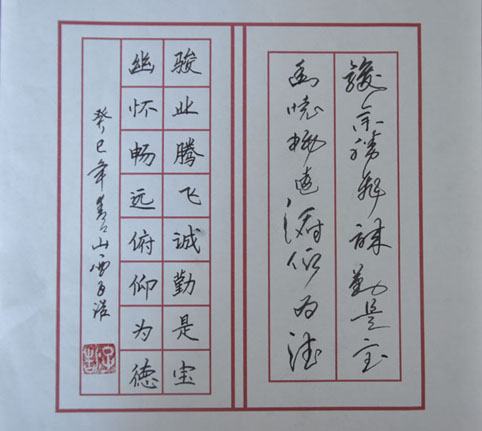 骏业腾飞诚勤是宝
幽怀畅远俯仰为德
骏业腾飞诚勤是宝
幽怀畅远俯仰为德
癸巳年山西